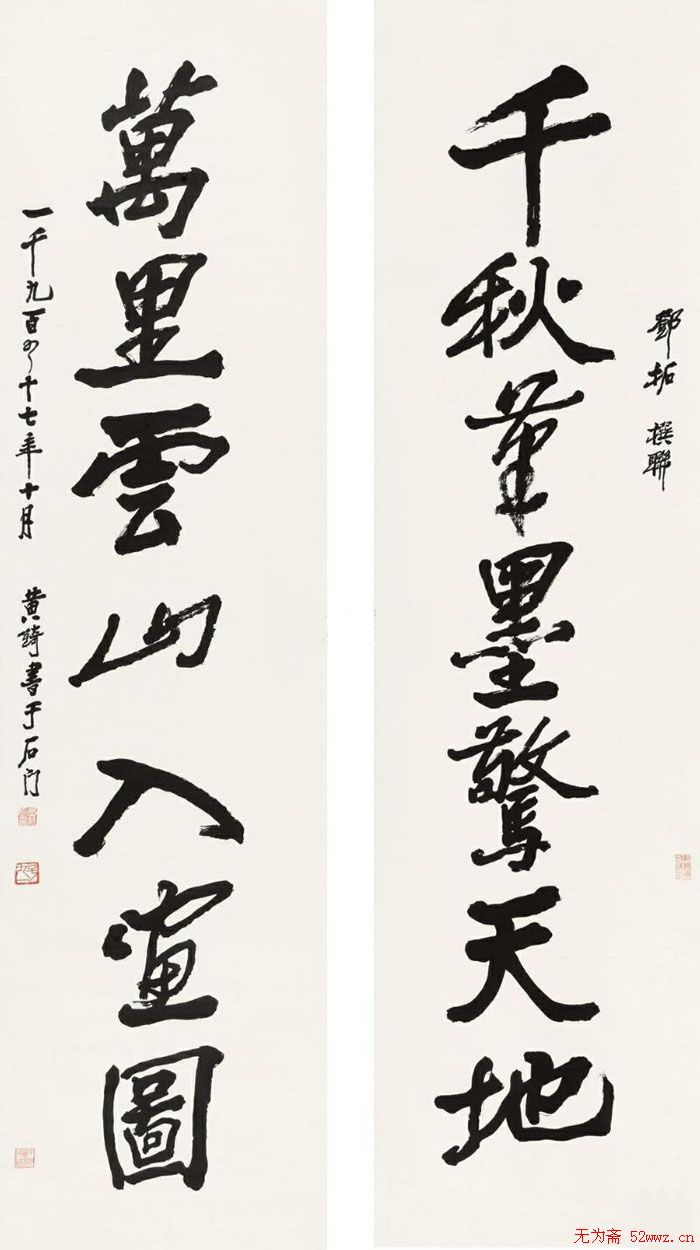 鄧拓 撰聯
千秋筆墨驚天地
萬里雲山入畫圖
一千九百八十七年十月 黄綺書于石门
无为斋 52wwz.cn